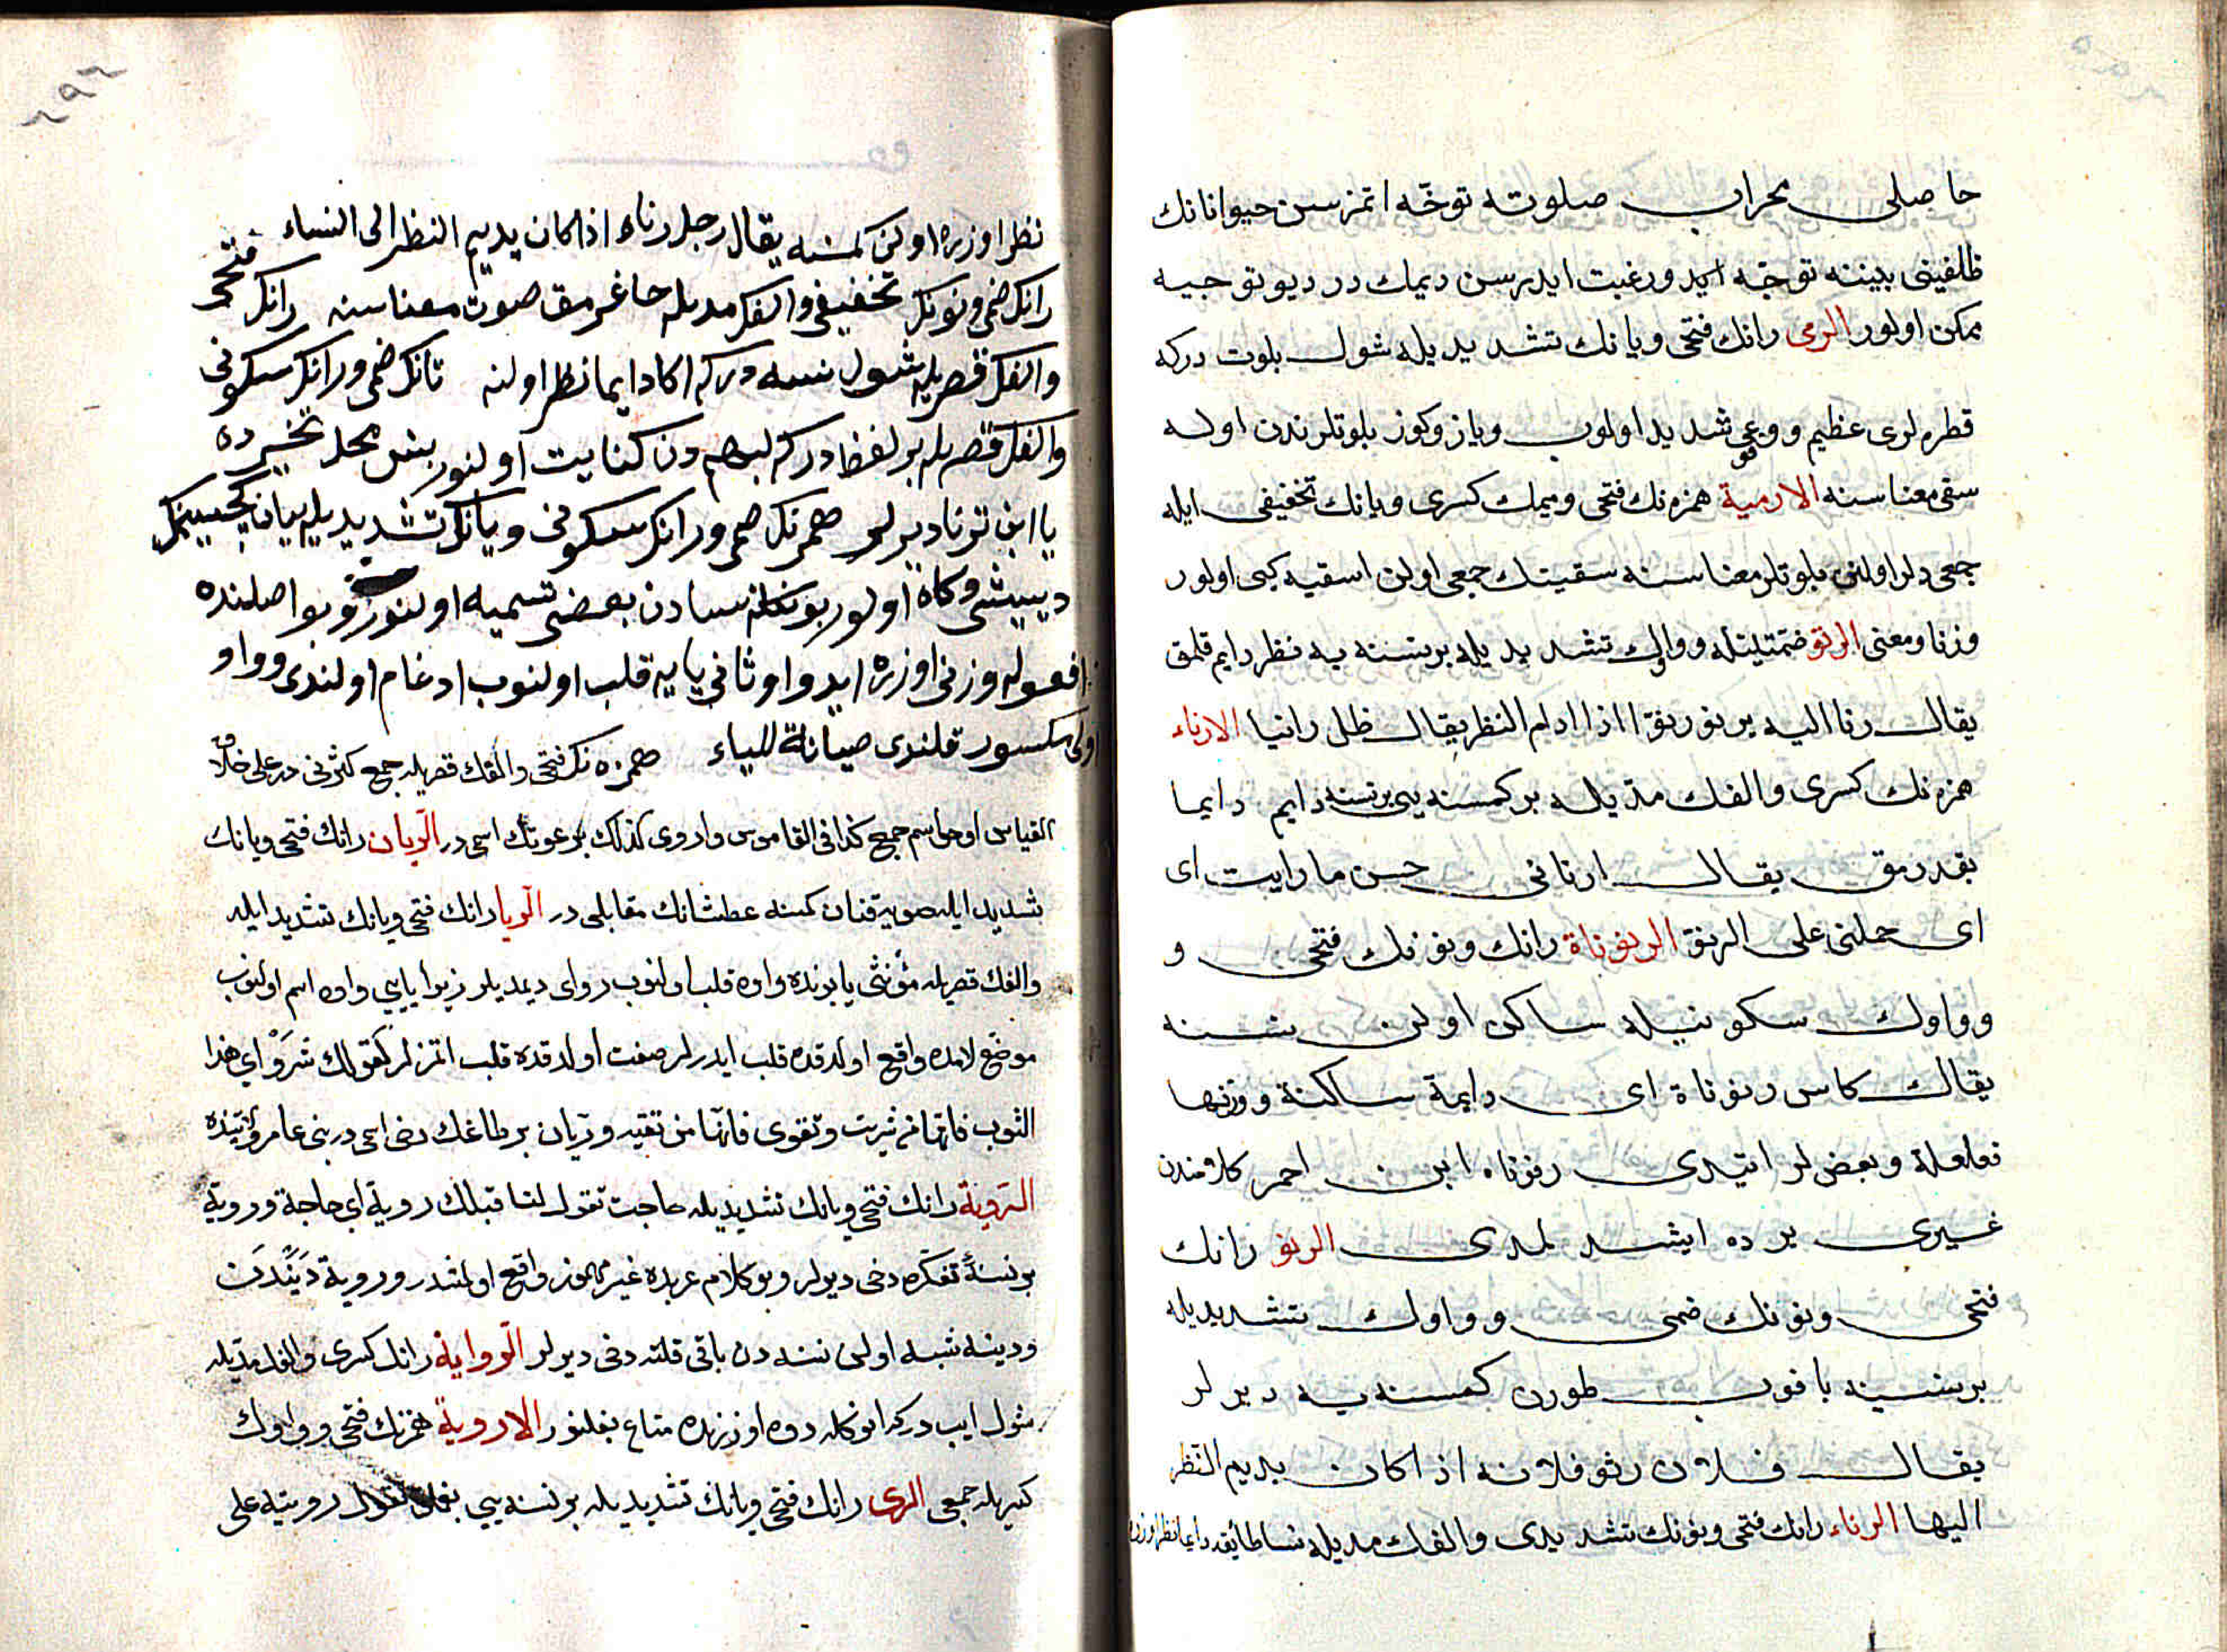 حاصلى محراب صلوته توجّه اتمزسن حيواناتك
ظلفينى بيننه توجّه ايدر و رغبت ايدرسن ديمك در ديو توجيه
ممكن اولور الرمى رانك فتحى ويانك تشديديله شول بلوت دركه
قطره لرى عظيم و وقعى شديد اولوب وياز وكوز بلوتلرندن اوله
سقى معناسنه الارمية همزه نك فتحى وميمك كسرى ويانك تخفيفى ايله
جمعى در اولنر بلوتلر معناسنه سقيتك جمعى اولن اسقيه كبى اولور
وزنا ومعنى الرنو ضمتينله وواوك تشديديله برنسنه يه نظر دايم قلمق
يقال رنا اليه يرنو رنوّا اذا ادام النظر يقال ظل رانيا الارناء
همزه نك كسرى والفك مدّيله بر كمسنه يى برنسنه دايم دايما
بقدرمق يقال ارنانى حسن ما رايت اى
اى حملنى على الرنوّ الرنوناة رانك ونونك فتحى و
وواوك سكونيله ساكن اولن نسنه
يقال كاس رنوناة اى دايمة ساكنة ووزنها
فعلعلة وبعضلر ايتدى رنوناه ابن احمر كلامندن
غيرى يرده ايشدلمدى الرنو رانك
فتحى ونونك ضمى وواوك تشديديله
برنسنيه باقوب طورن كمسنه يه ديرلر
يقال فلان رنو فلانه اذا كان يديم النظر
اليها الرناء رانك فتحى ونونك تشديدى والفك مديله نساطائفه دايما نظر اوزره
نظر اوزره اولن كمسنه يقال رجل رناء اذا كان يديم النظر الى النساء
رانك ضمى ونونك تخفيفى والفك مديله چاغرمق صوت معناسنه رانك فتحى
والفك قصريله شول نسنه دركه اكا دايما نظر اولنه تانك ضمى ورانك سكونى
والفك قصريله بر لفظ دركه لئيمه دن كنايت اولنور بنس محل تخسرده
يا ابن ترنا ديرلر همزنك ضمى ورانك سكونى ويانك تشديديله يبان كچيسينك
ديشيسى وكاه اولور بونكله نسادن بعضى تسميه اولنور وبو اصلنده
افعوله وزنى اوزره ايدى واو ثانى يايه قلب اولنوب ادغام اولندى وواو
اولى مكسور قلندى صيانة للياء همزه نك فتحى والفك قصريله جمع كثرتى در على خلاف
القياس اوحى اسم جمع كذا فى القاموس واروى كذلك بر عوتك اسمى در الريان رانك فتحى ويانك
تشديد ايله صويه قنان كمسنه عطشانك مقابلى در الريا رانك فتحى ويانك تشديد ايله
والفك قصريله مؤنثى يا بونده واوه قلب اولنوب روّى ديمديلر زيرا يايى واوه اسم اولنوب
موضع لامده واقع اولدقده قلب ايدرلر صفت اولدقده قلب اتمزلر كقولك شروى هذا
الثوب فانها من شريت وتقوى فانها من تقيه وريان بر طاغك دخى اسمى در بنى عامر ولايتنده
الروية رانك فتحى ويانك تشديديله حاجت تقول لنا قبلك روية اى حاجة وروية
برنسنه تفكره دخى ديرلر وبو كلام عربده غير مهموز واقع اولمشدر وروية
ودينه شبه اولى نسنه دن باقى قلنه دخى ديرلر الرواية رانك كسرى والفك مديله
شول ايب دركه انوكله دوه اوزرنده متاع بغلنور الاروية همزنك فتحى وواوك
كسريله جمعى الرى رانك فتحى ويانك تشديديله برنسنه يى بغلمق تقول رويته على